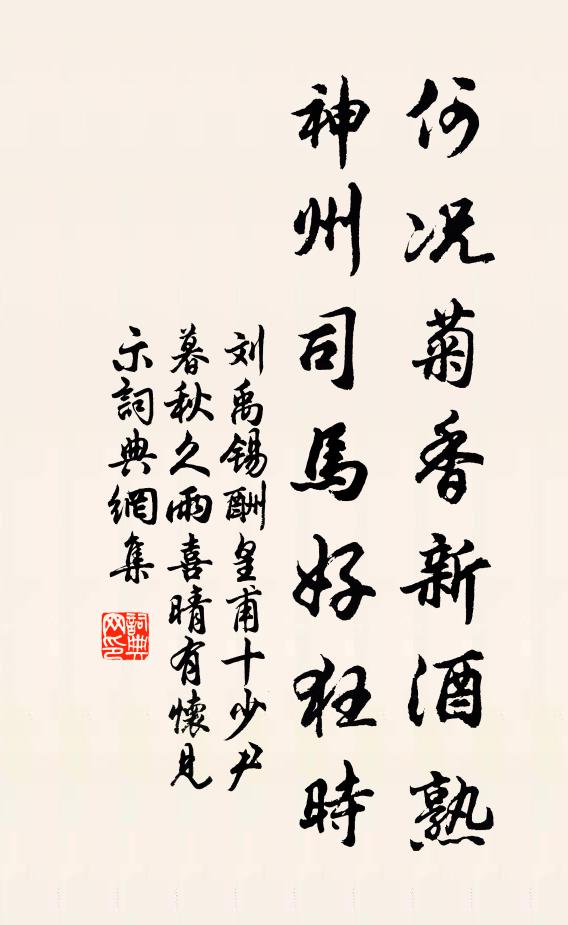 何况菊香新酒熟
神州司馬好狂時
刘禹锡酬皇甫十少尹
暮秋久雨喜晴有懷見
示詞典網集
詞典网印